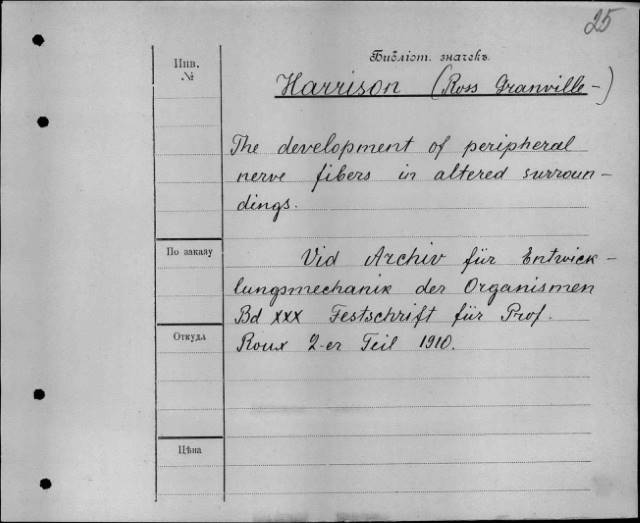 25
Библіот. значекъ
Инв.
№
Harrison (Ross Granville-)
The development of peripheral
nerve fibers in altered surroun-
dings.
По заказу
Vid Archiv für Entwick-
lungsmechanik der Organismen
Bd XXX Festschrift für Prof.
Откуда
Roux 2-er Teil 1910.
Цѣна